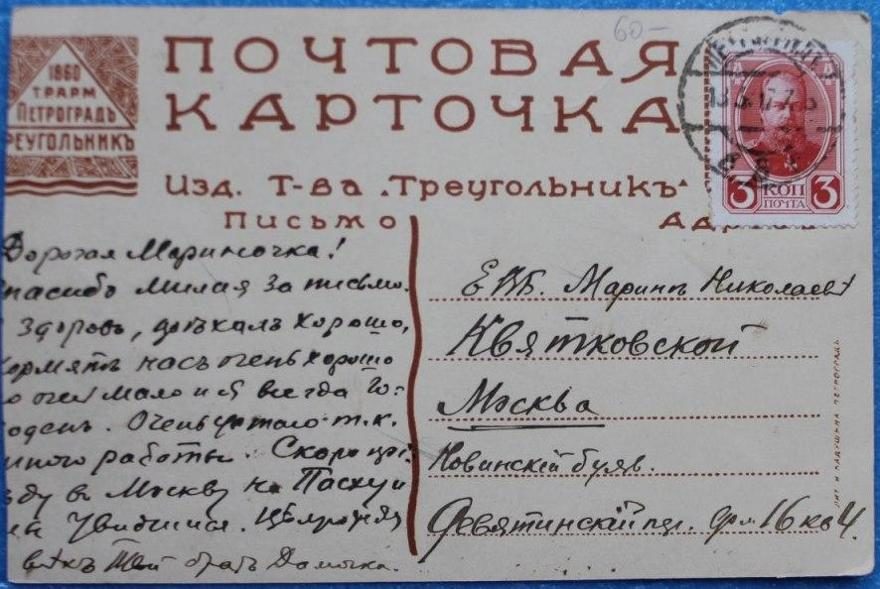 60-
1860
ТРАРМ
ПЕТРОГРАДЪ
РЕУГОЛЬНИКЪ
ПОЧТОВАЯ
КАРТОЧКА
Изд. Т-ва „Треугольникъ“
3 КОП 3
ПОЧТА
Письмо
Дорогая Мариночка!
Спасибо милая за письмо.
здоровъ, доѣхалъ хорошо,
кормятъ насъ очень хорошо
но очень мало и я всегда го-
лоденъ. Очень устаю т.к.
много работы. Скоро прі-
ѣду в Москву на Пасху и
увидимся. Цѣлую
всѣхъ Твой братъ
Е.В.Б. Маринѣ Николаев
Квятковской
Москва
Новинскій бульв.
Девятинскій пер. дом 16 кв 4.
ЛИТ И КАДУШИНА ПЕТРОГРАДЪ